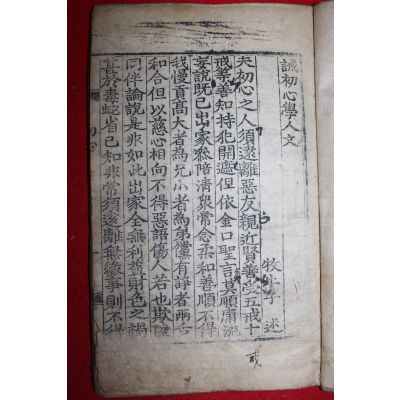 誡初心學人文
牧牛子 述
夫初心之人須遠離惡友親近賢善受五戒十
戒等善知持犯開遮但依金口聖言莫順庸流
妄說既已出家叅陪清衆常念柔和善順不得
我慢貢高大者為兄小者為弟儻有諍者兩
和合但以慈心相向不得惡語傷人若也欺凌
同伴論說是非如此出家全無利益財色之禍
甚於毒蛇省己知非常須遠離無緣事則不得
戒